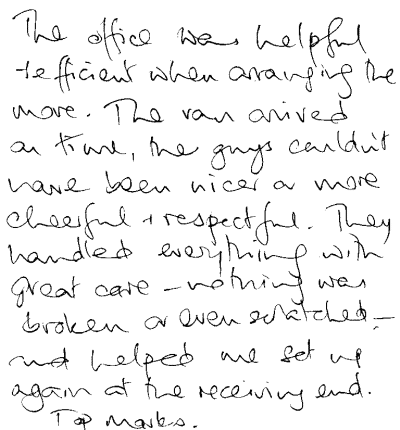 The office was helpful
+ efficient when arranging the
move. The van arrived
on time, the guys couldn't
have been nicer or more
cheerful + respectful. They
handled everything with
great care – nothing was
broken or even scratched –
and helped me set up
again at the receiving end.
Top Marks.